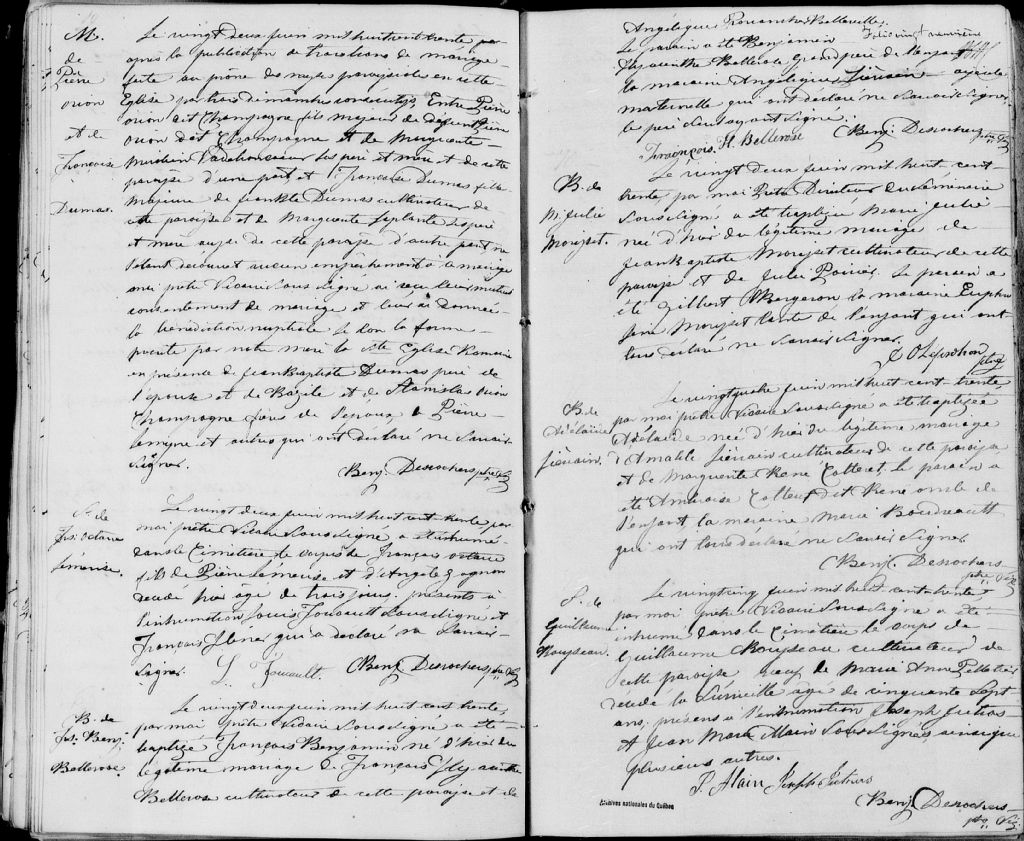 M.
de
Pierre
ouion
et de
Françoise
Dumas.
Le vingt deux juin mil huit cent trente
après la publication de trois bans de mariage
faite au prône des messes paroissiales en cette
Eglise par trois dimanches consécutifs, Entre Pierre
ouion dit Champagne fils majeur de défunt Pierre
ouion dit Champagne et de Marguerite
ses père et mere de cette
paroisse d'une part, et Françoise Dumas fille
majeure de Jean Bte Dumas cultivateur de
cette paroisse et de Marguerite Laplante ses père
et mere aussi de cette paroisse d'autre part, ne
s'étant découvert aucun empêchement à ce mariage
moi prêtre Vicaire Sous signé ai reçu leur mutuel
consentement de mariage et leur ai donné
la bénédiction nuptiale selon la forme
prescrite par notre mere la Ste Eglise Romaine
en présence de Jean Baptiste Dumas père de
l'épouse et de Bazile et de Stanislas ouion
Champagne frères de l'époux, Pierre
et autres qui ont déclaré ne Savoir
Signer.
Benj. Desrochers ptre Vic
S. de
Frs. octave
Lemorise.
Le vingt deux juin mil huit cent trente par
moi prêtre Vicaire Sous signé a été inhumé
dans le Cimetière le corps de François octave
fils de Pierre Lémorise et d'Angèle Gagnon
decédé agé de trois jours. présents à
l'inhumation Louis Foucault Sous signé et
François qui a déclaré ne Savoir
Signer.
L. Foucault. Benj. Desrochers ptre Vic
B. de
Frs. Benj.
Bellerose.
Le vingt deux juin mil huit cent trente,
par moi prêtre Vicaire Sous signé a été
baptizé François Benjamin né d'hier du
légitime mariage de François
Bellerose cultivateur de cette paroisse et de
Angélique Bellerose.
Le parain a été Benjamin
Hyacinthe Bellerose Grand père de l'enfant
la maraine Angélique ayeule
maternelle qui ont déclaré ne Savoir Signer,
le père Sousignant Signé.
François H. Bellerose Benj. Desrochers ptre Vic
B. de
M. Julie
Morisset.
Le vingt deux juin mil huit cent
trente, par moi Prêtre Directeur du Séminaire
Sous signé a été baptizée Marie Julie
née d'hier du légitime mariage de
Jean Baptiste Morisset cultivateur de cette
paroisse et de Julie Poirier. Le parain a
été Gilbert Bergeron la maraine Euphro
sine Morisset tante de l'enfant qui ont
tous déclaré ne Savoir Signer.
B. de
Adélaïde
Le vingt quatre juin mil huit cent trente
par moi prêtre Vicaire Sous signé a été baptizée
Adélaïde née d'hier du légitime mariage
d'Amable cultivateur de cette paroisse
et de Marguerite René Cotteret, le parain a
été Ambroise Cotteret dit René oncle de
l'enfant la maraine Marie Boudreault
qui ont tous déclaré ne Savoir Signer.
Benj. Desrochers
ptre Vic
S. de
Guillaume
Rousseau.
Le vingt cinq juin mil huit cent trente
par moi prêtre Vicaire Sous signé a été
inhumé dans le Cimetière le corps de
Guillaume Rousseau cultivateur de
cette paroisse de Marie Anne Pelletier
decédé la Surveille agé de cinquante Sept
ans, présens à l'inhumation Joseph
et Jean Marie Alain Sous signés ainsi que
plusieurs autres.
P. Alain Joseph
Benj. Desrochers
ptre Vic
Archives nationales du Québec